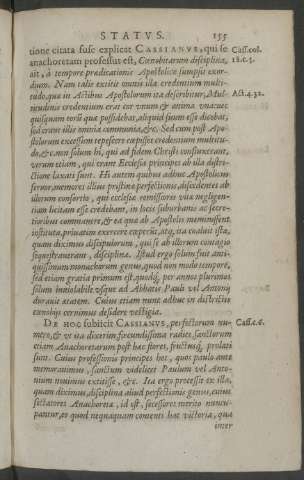 STATVS. 155
tione citata fuse explicat CASSIANVS, qui se
anachoretam professus est, Cœnobitarum disciplina,
ait, à tempore prædicationis Apostolicæ sumpsit exor-
dium. Nam talis extitit omnis illa credentium multi-
tudo, quæ in Actibus Apostolorum ita describitur, Mul-
titudinis credentium erat cor vnum & anima vna: nec
quisquam eorũ quæ possidebat, aliquid suum esse dicebat,
sed erant illis omnia communia, &c. Sed cum post Apo-
stolorum excessum tepescere cœpisset credentium multitu-
do, &c. non solum hi, qui ad fidem Christi confluxerant,
verum etiam, qui erant Ecclesiæ principes ab illa distri-
ctione laxati sunt. Hi autem quibus adhuc Apostolicus
feruor, memores illius pristinæ perfectionis, discedentes ab
illorum consortio, qui ecclesiæ remissioris vita negligen-
tiam licitam esse credebant, in locis suburbanis ac secre-
tioribus commanere, & ea quæ ab Apostolis meminissent
instituta, priuatim exercere cœperũt, atq, ita coaluit ista,
quam diximus discipulorum, qui se ab illorum contagio
sequestrauerant, disciplina. Istud ergo solum fuit anti-
quissimum monachorum genus, quod non modo tempore,
sed etiam gratia primum est, quodq, per annos plurimos
solum inuiolabile vsque ad Abbatis Pauli vel Antonij
durauit ætatem. Cuius etiam nunc adhuc in districtis
cœnobijs cernimus desidere vestigia.
DE HOC subiicit CASSIANVS, perfectorum nu-
mero, & vt ita dixerim fœcundissima radice, sanctorum
etiam Anachoretarum post hæc flores, fructusq, prolati
sunt. Cuius professionis principes hos, quos paulo ante
memorauimus, sanctum videlicet Paulum vel Anto-
nium nouimus extitisse, &c. Ita ergo processit ex illa,
quam diximus, disciplina aliud perfectionis genus, cuius
sectatores Anachoretæ, id est, secessores merito nuncu-
pantur, eo quod nequaquam contenti hac victoria, qua
inter
Cass. col.
18. c. 5.
Act. 4. 32.
Cass. c. 6.